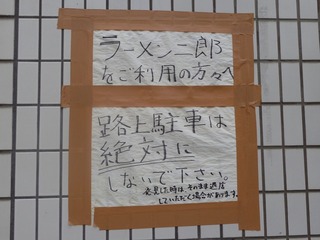 ラーメン二郎
をご利用の方々へ
路上駐車は
絶対に
しないで下さい。
発見した時はそのまま退店
していただく場合があります。